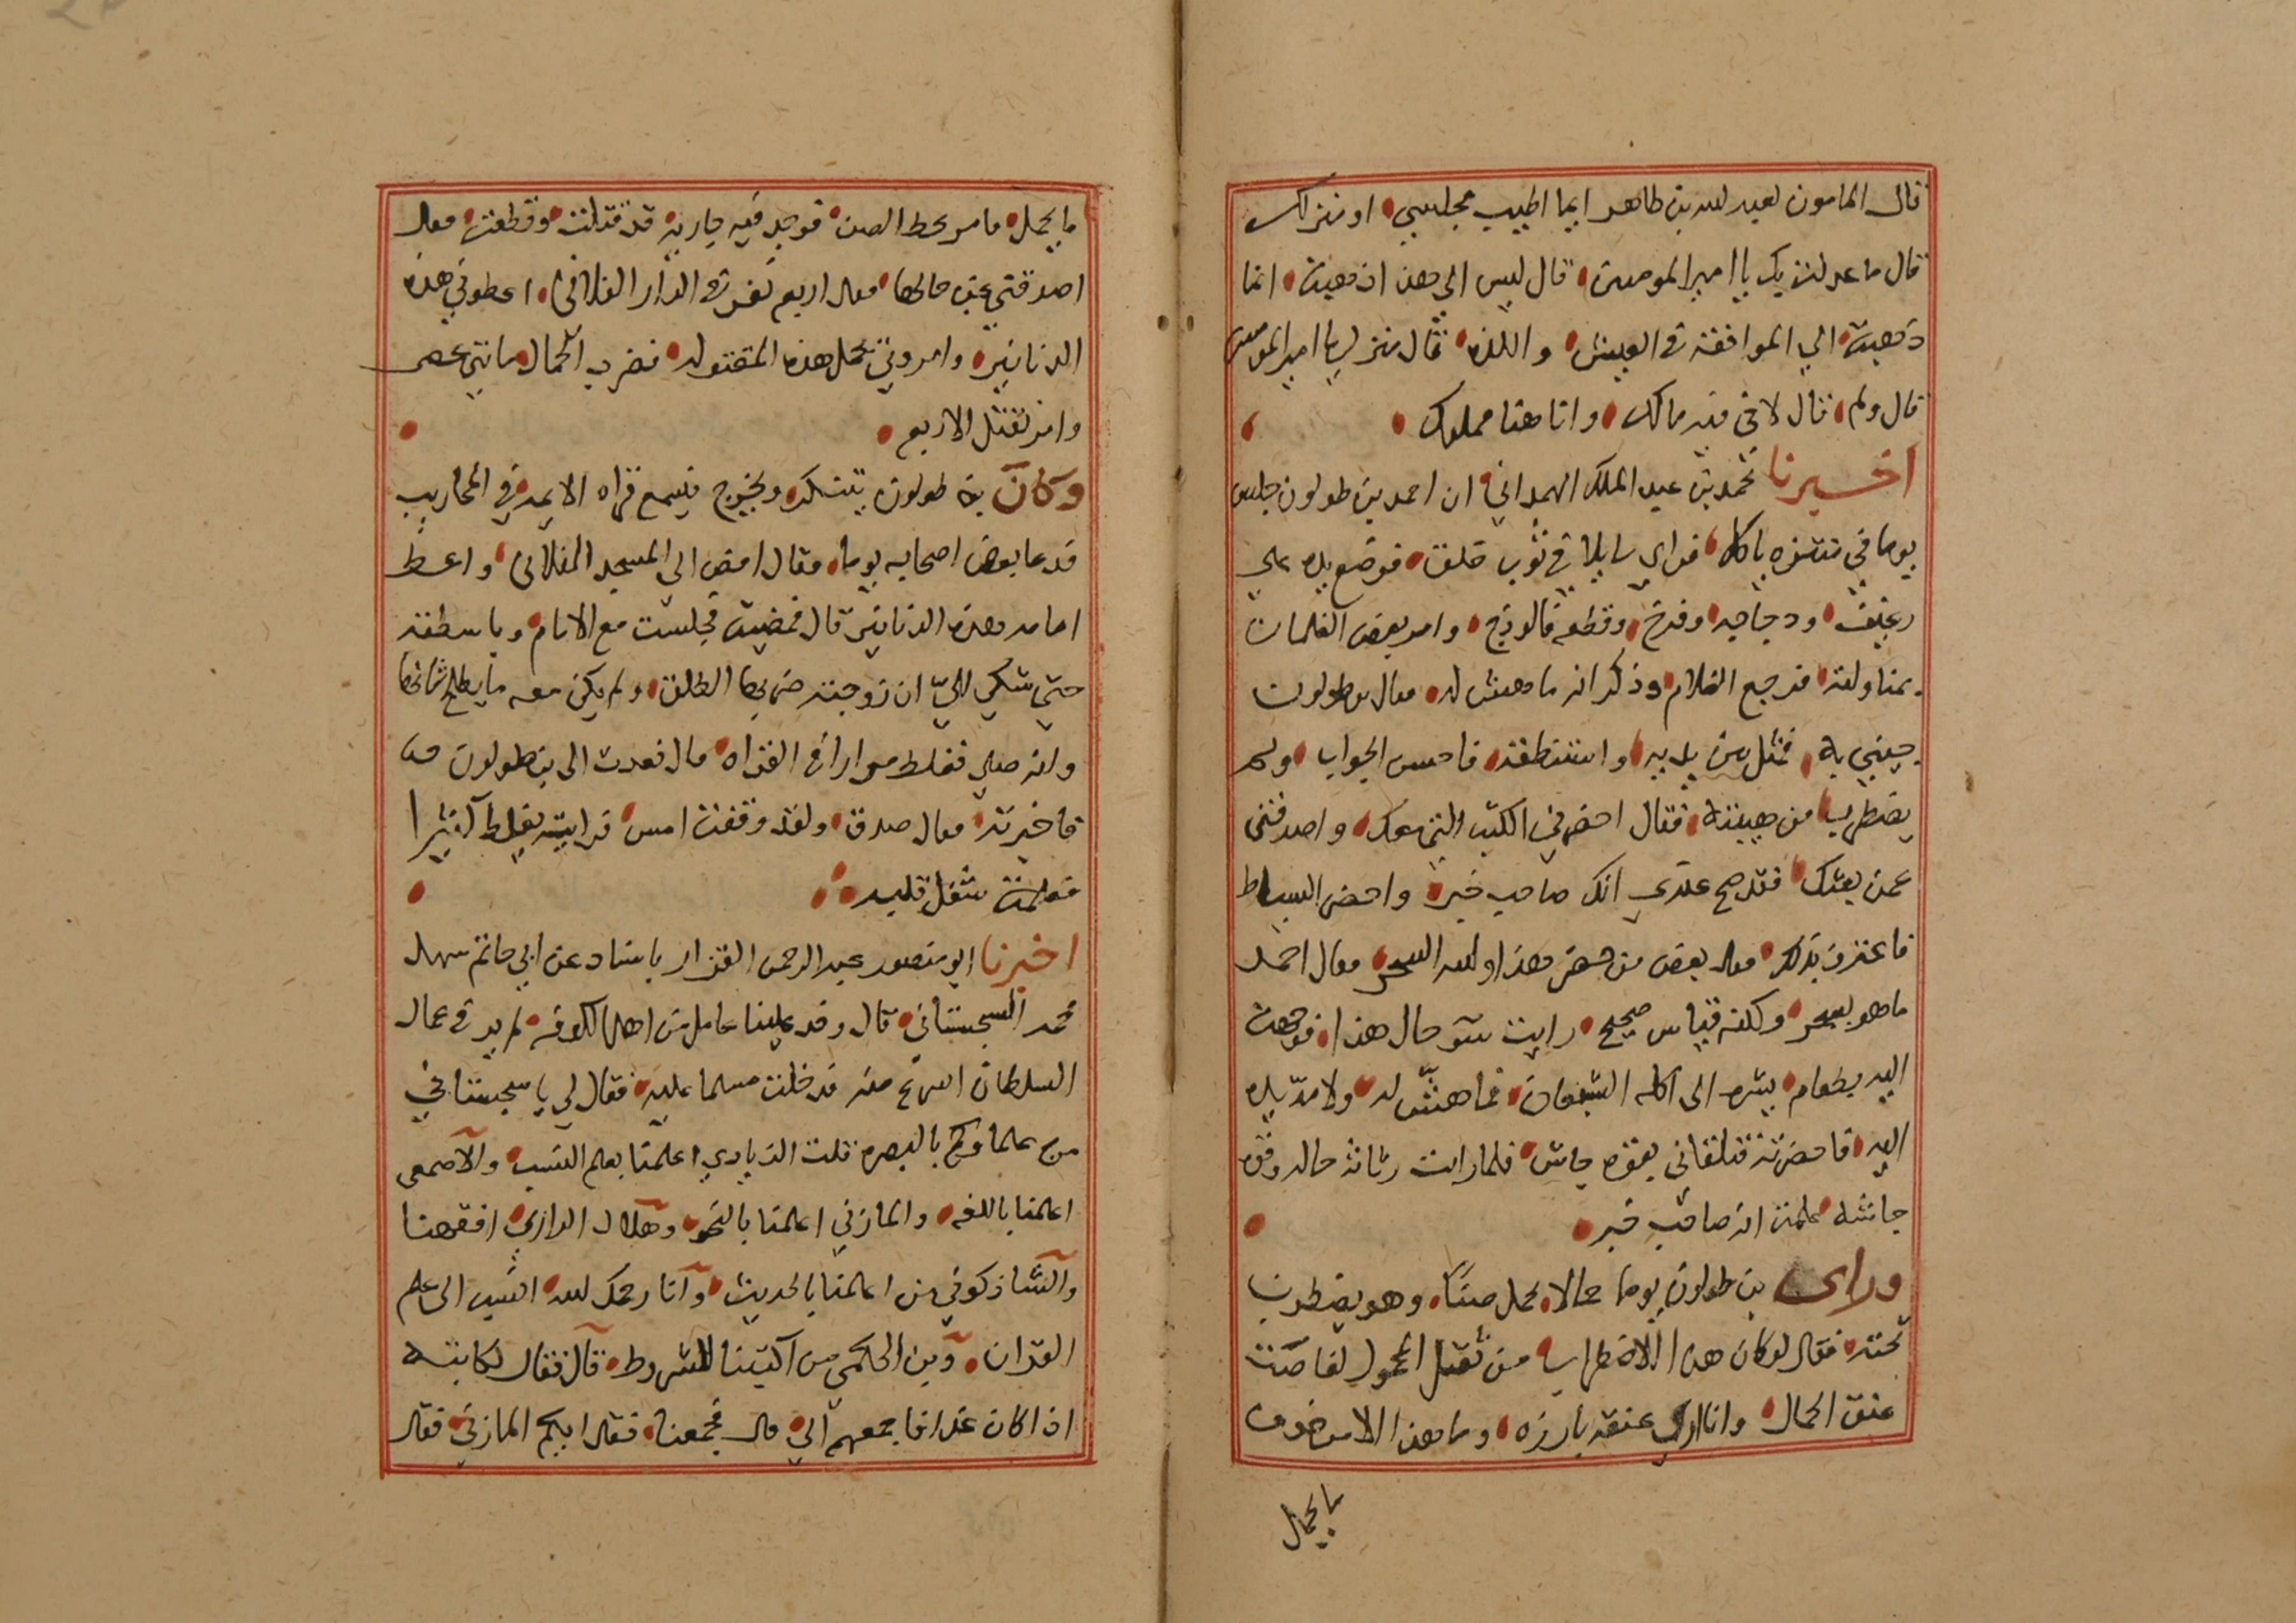 قال المامون لعبد الله بن طاهر ايما اطيب مجلسي او منزلك
قال ما عدلت بك يا امير المومنين قال ليس الي هذا ذهبت انما
ذهبت الي الموافقة في العيش واللذه قال منزلي يا امير المومنين
قال ولم قال لاني فيه مالك وانا هنا مملوك
اخبرنا محمد بن عبد الملك الهمداني ان احمد بن طولون جلس
يوما في متنزه ياكل فراي سايلا في ثوب خلق فوضع يده علي
رغيف ودجاجه وفرخ وقطعه فالوذج وامر بعض الغلمان
بمناولته فرجع الغلام وذكر انه ما هش له فقال بن طولون
جيني به فمثل بين يديه واستنطقه فاحسن الجواب ولم
يضطرب من هيبته فقال احضرني الكتب التي معك واصدقني
عمن بعثك فقد صح عندي انك صاحب خبر واحضر السياط
فاعترف بذلك فقال بعض من حضر هذا والله السحر فقال احمد
ما هو بسحر ولكنه قياس صحيح رايت سو حال هذا فوجهت
اليه بطعام يشره الى اكله الشبعان فما هش له ولا مد يده
اليه فاحضرته فتلقاني بقوه جاش فلما رايت رثاثة حاله وقوه
جاشه علمت انه صاحب خبر
وراى بن طولون يوما حمالا يحمل صنا وهو يضطرب
تحته فقال لو كان هذا الاضطراب من ثقل المحمول لغاصت
عنق الحمال وانا اري عنقه بارزه وما هذا الا من خوف
ما يحمل
ما يحمل فامر بحط الصن فوجد فيه جاريه قد قتلت وقطعت فقال
اصدقني عن حالها فقال اربع نفر في الدار الفلاني اعطوني هذه
الدنانير وامروني بحمل هذه المقتوله فضرب الحمال مايتي عصى
وامر بقتل الاربع
وكان بن طولون يتنكر ويخرج فيسمع قراه الايمه في المحاريب
فدعا بعض اصحابه يوما وقال امض الي المسجد الفلاني واعط
امامه هذه الدنانير قال فمضيت فجلست مع الامام وباسطته
حتي شكي الي ان زوجته ضربها الطلق ولم يكن معه ما يصلح شانها
وانه صلي فغلط مرارا في القراه قال فعدت الى بن طولون
فاخبرته فقال صدق ولقد وقفت امس فرايته يغلط كثيرا
فعلمت شغل قلبه
اخبرنا ابو منصور عبد الرحمن القزاز باسناد عن ابي حاتم سهل
محمد السجستاني قال وفد علينا عامل من اهل الكوفه لم ير في عمال
السلطان ابرع منه فدخلت مسلما عليه فقال لي يا سجستاني
من علماوكم بالبصره قلت الزيادي اعلمنا بعلم النسب والاصمعي
اعلمنا باللغه والمازني اعلمنا بالنحو وهلال الرازي افقهنا
والشاذكوني من اعلمنا بالحديث وانا رحمك الله انسب الى علم
القران وبن الكلبي من اكتبنا للشروط قال فقال لكاتبه
اذا كان غدا فاجمعهم الي قال فجمعنا فقال ايكم المازني فقال